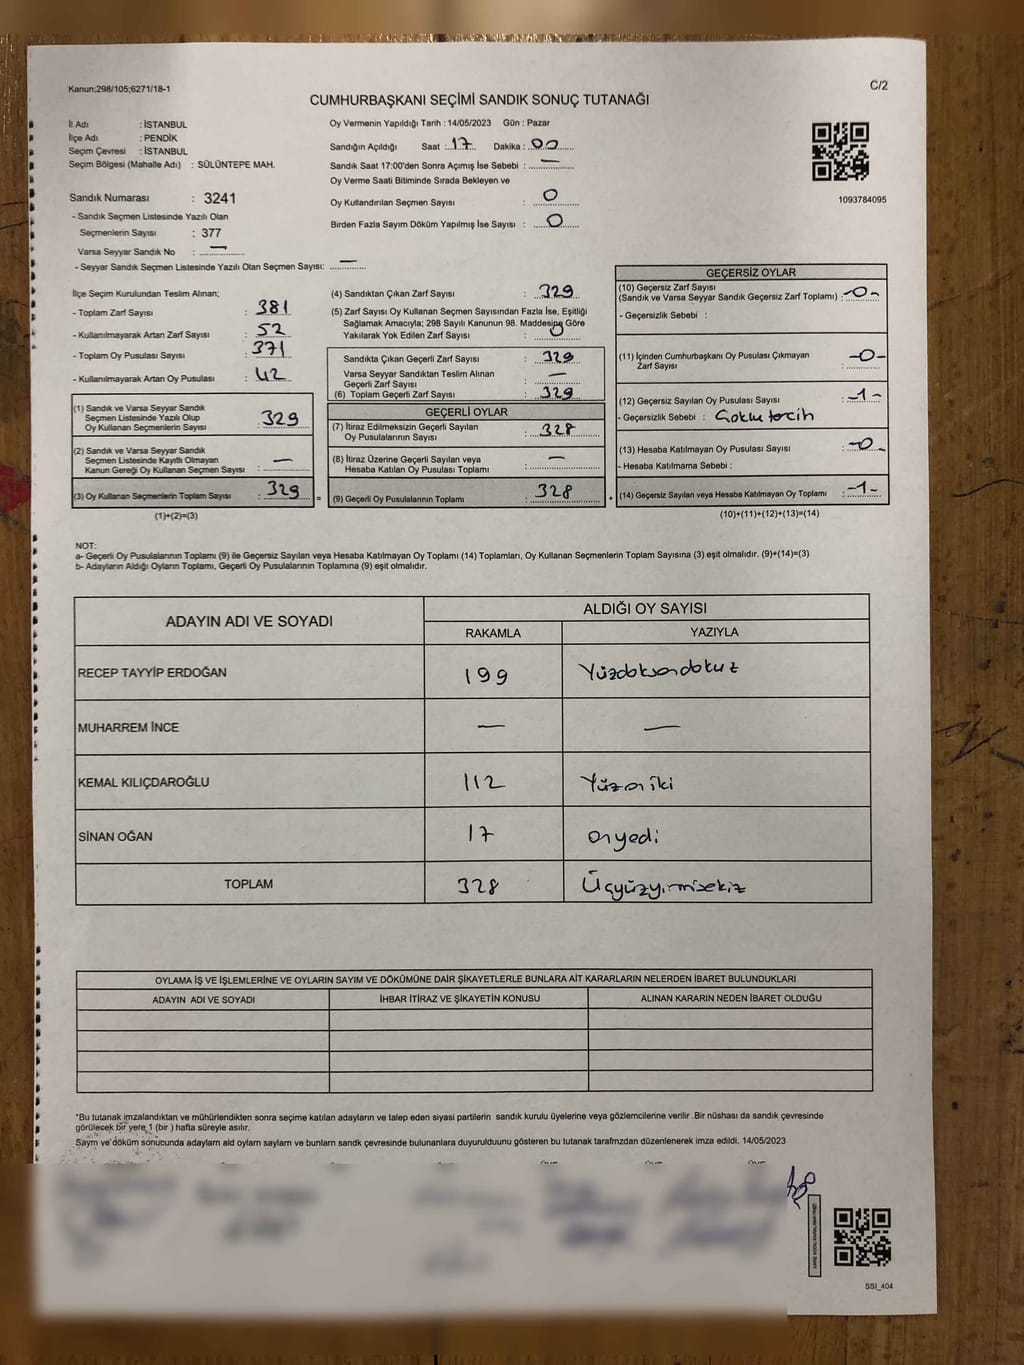 Kanun;298/105;6271/18-1
C/2
CUMHURBAŞKANI SEÇİMİ SANDIK SONUÇ TUTANAĞI
İl Adı : İSTANBUL
İlçe Adı : PENDİK
Seçim Çevresi : İSTANBUL
Seçim Bölgesi (Mahalle Adı) : SÜLÜNTEPE MAH.
Sandık Numarası : 3241
- Sandık Seçmen Listesinde Yazılı Olan
Seçmenlerin Sayısı : 377
Varsa Seyyar Sandık No : —
- Seyyar Sandık Seçmen Listesinde Yazılı Olan Seçmen Sayısı: —
Oy Vermenin Yapıldığı Tarih : 14/05/2023 Gün : Pazar
Sandığın Açıldığı Saat : 17 Dakika : 00
Sandık Saat 17:00'den Sonra Açımış İse Sebebi : —
Oy Verme Saati Bitiminde Sırada Bekleyen ve
Oy Kullandırılan Seçmen Sayısı : 0
Birden Fazla Sayım Döküm Yapılmış İse Sayısı : 0
1093784095
İlçe Seçim Kurulundan Teslim Alınan;
- Toplam Zarf Sayısı : 381
- Kullanılmayarak Artan Zarf Sayısı : 52
- Toplam Oy Pusulası Sayısı : 371
- Kullanılmayarak Artan Oy Pusulası : 42
(1) Sandık ve Varsa Seyyar Sandık
Seçmen Listesinde Yazılı Olup
Oy Kullanan Seçmenlerin Sayısı : 329
(2) Sandık ve Varsa Seyyar Sandık
Seçmen Listesinde Kayıtlı Olmayan
Kanun Gereği Oy Kullanan Seçmen Sayısı : —
(3) Oy Kullanan Seçmenlerin Toplam Sayısı : 329 =
(1)+(2)=(3)
(4) Sandıktan Çıkan Zarf Sayısı : 329
(5) Zarf Sayısı Oy Kullanan Seçmen Sayısından Fazla İse, Eşitliği
Sağlamak Amacıyla; 298 Sayılı Kanunun 98. Maddesine Göre
Yakılarak Yok Edilen Zarf Sayısı : 0
Sandıkta Çıkan Geçerli Zarf Sayısı : 329
Varsa Seyyar Sandıktan Teslim Alınan
Geçerli Zarf Sayısı : —
(6) Toplam Geçerli Zarf Sayısı : 329
GEÇERLİ OYLAR
(7) İtiraz Edilmeksizin Geçerli Sayılan
Oy Pusulalarının Sayısı : 328
(8) İtiraz Üzerine Geçerli Sayılan veya
Hesaba Katılan Oy Pusulası Toplamı : —
(9) Geçerli Oy Pusulalarının Toplamı : 328 +
GEÇERSİZ OYLAR
(10) Geçersiz Zarf Sayısı
(Sandık ve Varsa Seyyar Sandık Geçersiz Zarf Toplamı) : -0-
- Geçersizlik Sebebi :
(11) İçinden Cumhurbaşkanı Oy Pusulası Çıkmayan
Zarf Sayısı : -0-
(12) Geçersiz Sayılan Oy Pusulası Sayısı : -1-
- Geçersizlik Sebebi : Çoklu tercih
(13) Hesaba Katılmayan Oy Pusulası Sayısı : -0-
- Hesaba Katılmama Sebebi :
(14) Geçersiz Sayılan veya Hesaba Katılmayan Oy Toplamı : -1-
(10)+(11)+(12)+(13)=(14)
NOT:
a- Geçerli Oy Pusulalarının Toplamı (9) ile Geçersiz Sayılan veya Hesaba Katılmayan Oy Toplamı (14) Toplamları, Oy Kullanan Seçmenlerin Toplam Sayısına (3) eşit olmalıdır. (9)+(14)=(3)
b- Adayların Aldığı Oyların Toplamı, Geçerli Oy Pusulalarının Toplamına (9) eşit olmalıdır.
ADAYIN ADI VE SOYADI ALDIĞI OY SAYISI
RAKAMLA YAZIYLA
RECEP TAYYİP ERDOĞAN 199 Yüzdoksandokuz
MUHARREM İNCE — —
KEMAL KILIÇDAROĞLU 112 Yüzoniki
SİNAN OĞAN 17 onyedi
TOPLAM 328 Üçyüzyirmisekiz
OYLAMA İŞ VE İŞLEMLERİNE VE OYLARIN SAYIM VE DÖKÜMÜNE DAİR ŞİKAYETLERLE BUNLARA AİT KARARLARIN NELERDEN İBARET BULUNDUKLARI
ADAYIN ADI VE SOYADI İHBAR İTİRAZ VE ŞİKAYETİN KONUSU ALINAN KARARIN NEDEN İBARET OLDUĞU
*Bu tutanak imzalandıktan ve mühürlendikten sonra seçime katılan adayların ve talep eden siyasi partilerin sandık kurulu üyelerine veya gözlemcilerine verilir .Bir nüshası da sandık çevresinde
görülecek bir yere 1 (bir ) hafta süreyle asılır.
Sayım ve döküm sonucunda adayların ald oyların sayların ve bunların sandk çevresinde bulunanlara duyurulduunu gösteren bu tutanak tarafmzdan düzenlenerek imza edildi. 14/05/2023
SSI_404